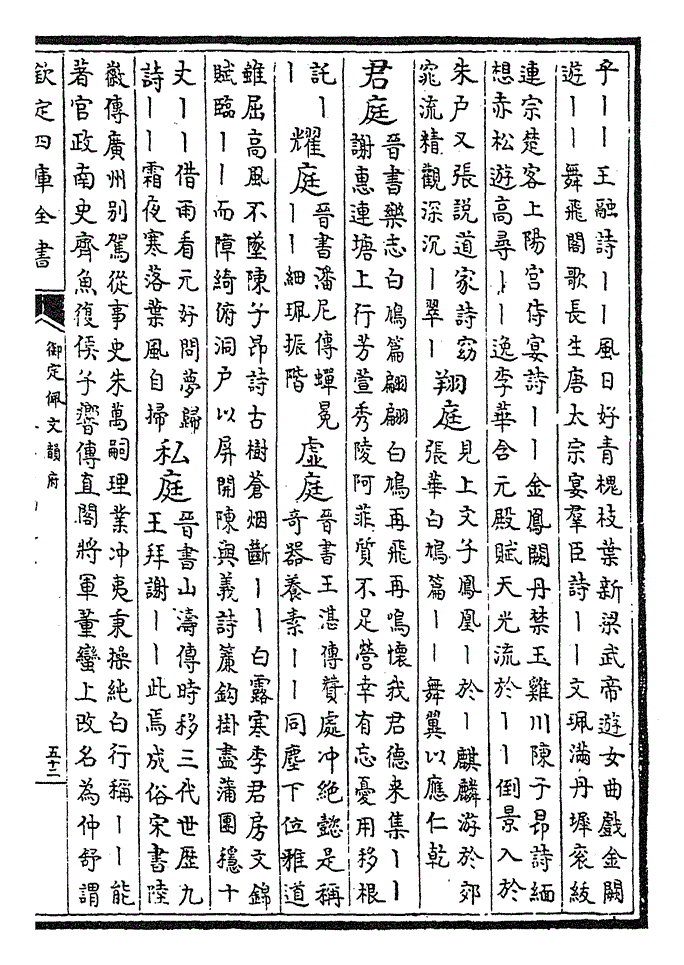 乎丨丨王融詩丨丨風日好青槐枝葉新梁武帝遊女曲戲金闕
遊丨丨舞飛閣歌長生唐太宗宴羣臣詩丨丨文珮滿丹墀衮紱
連宗楚客上陽宫侍宴詩丨丨金鳳闕丹禁玉雞川陳子昂詩緬
想赤松遊高尋丨丨逸李華含元殿賦天光流於丨丨倒景入於
朱戸又張說道家詩窈
窕流精觀深沉丨翠丨
翔庭
見上文子鳳凰丨於丨麒麟游於郊
張華白鳩篇丨丨舞翼以應仁乾
君庭
晉書樂志白鳩篇翩翩白鳩再飛再鳴懷我君德来集丨丨
謝惠連塘上行芳萱秀陵阿菲質不足營幸有忘憂用移根
託丨
丨丨
耀庭
晉書潘尼傳蟬冕
丨丨細珮振階
虛庭
晉書王湛傳贊處冲絶懿是稱
奇器養素丨丨同塵下位雅道
雖屈高風不墜陳子昂詩古樹蒼烟斷丨丨白露寒李君房文錦
賦臨丨丨而障綺俯洞戸以屏開陳與義詩簾鈎掛盡蒲團穩十
丈丨丨借雨看元好問夢歸
詩丨丨霜夜寒落葉風自掃
私庭
晉書山濤傳時移三代世歴九
王拜謝丨丨此焉成俗宋書陸
徽傳廣州别駕從事史朱萬嗣理業冲夷秉操純白行稱丨丨能
著官政南史齊魚復侯子響傳直閤將軍董蠻上改名為仲舒謂
欽定四庫全書
御定佩文韻府
五十二